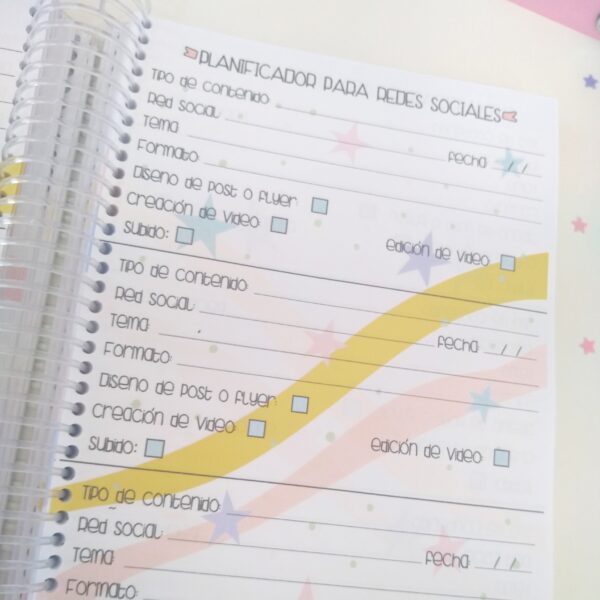 PLANIFICADOR PARA REDES SOCIALES
Tipo de contenido
Red Social
Tema
fecha / /
Formato:
Diseño de post o flyer
Creación de video
Subido:
Edición de video
Tipo de contenido
Red Social
Tema
fecha / /
Formato:
Diseño de post o flyer
Creación de video
Subido:
Edición de video
Tipo de contenido
Red Social
Tema
fecha / /
Formato: